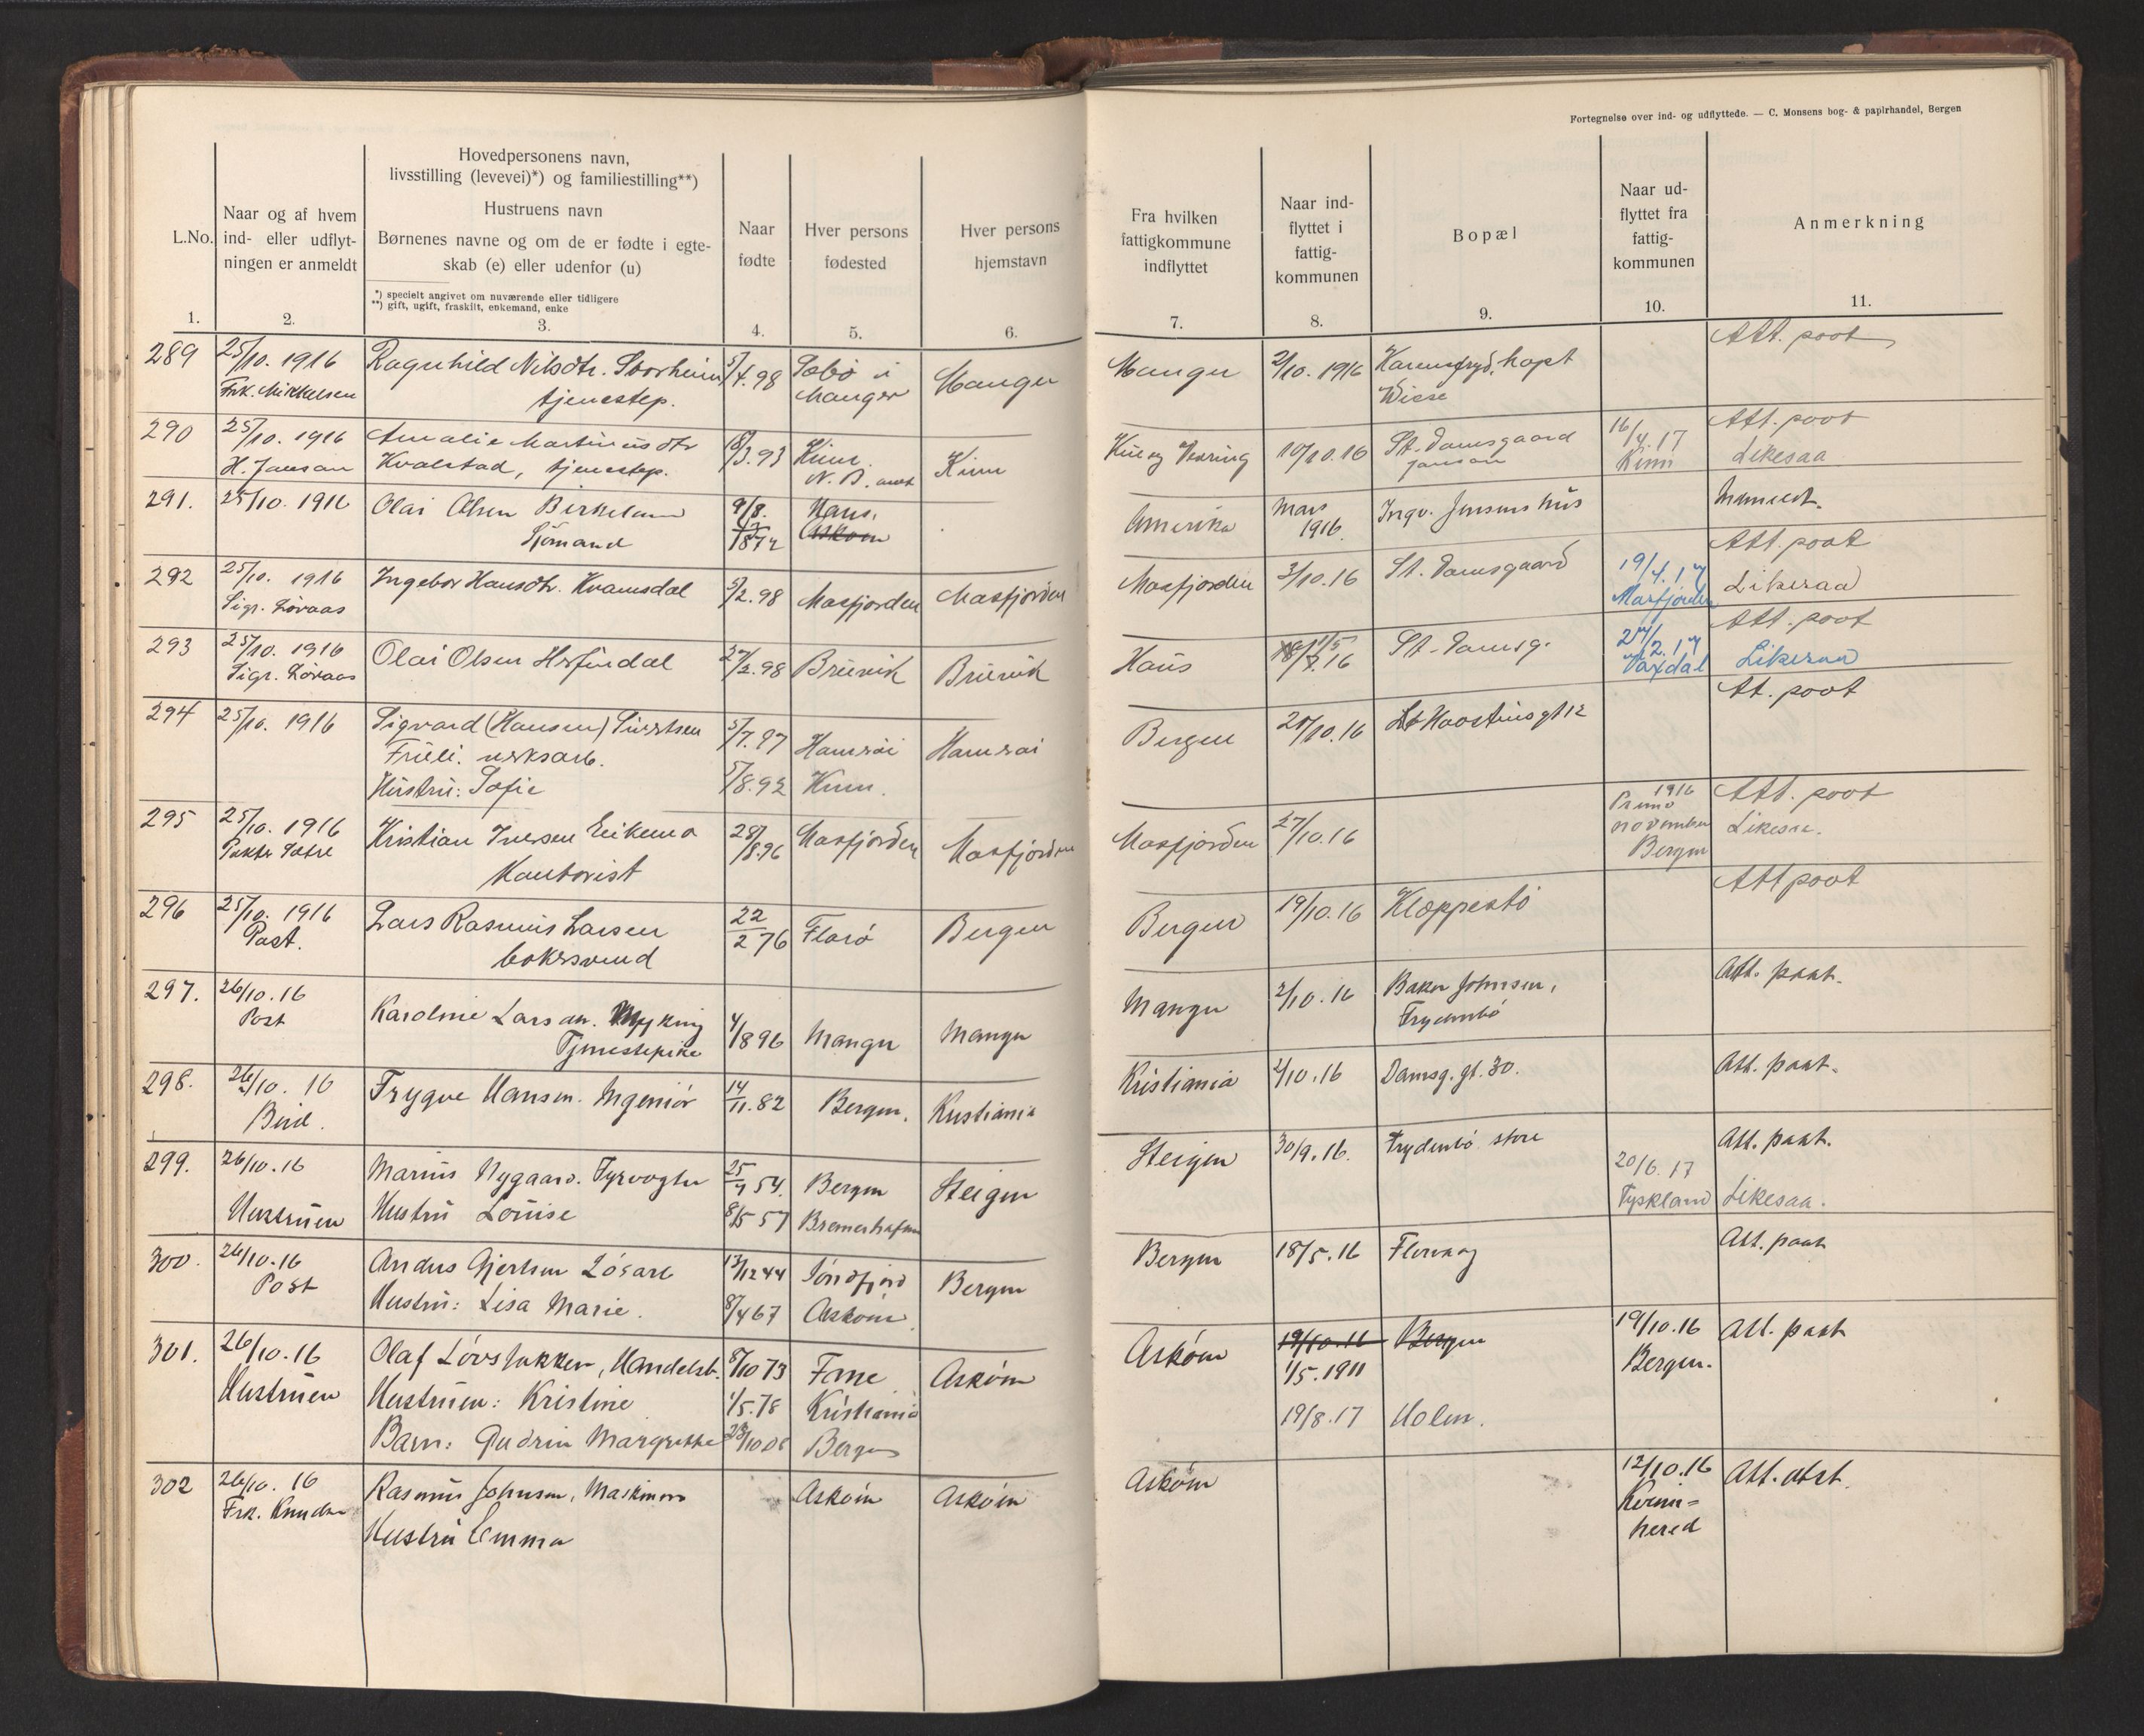 Fortegnelse over ind- og udflyttede. — C. Monsens bog- & papirhandel, Bergen
L.No.
1.
Naar og af hvem
ind- eller udflyt-
ningen er anmeldt
2.
Hovedpersonens navn,
livsstilling (levevei)*) og familiestilling**)
Hustruens navn
Børnenes navne og om de er fødte i egte-
skab (e) eller udenfor (u)
*) specielt angivet om nuværende eller tidligere
**) gift, ugift, fraskilt, enkemand, enke
3.
Naar
fødte
4.
Hver persons
fødested
5.
Hver persons
hjemstavn
6.
Fra hvilken
fattigkommune
indflyttet
7.
Naar ind-
flyttet i
fattig-
kommunen
8.
Bopæl
9.
Naar ud-
flyttet fra
fattig-
kommunen
10.
Anmerkning
11.
289 25/10. 1916 Ragnhild Nilsdtr. Storheim 5/4.98 Sæbø i Manger Manger 2/10. 1916
Frk. Mikkelsen tjenestep. Manger Wiese
Att. poat
290 25/10. 1916 Amalie Martinusdtr 18/3.93 Kinn Kinn 10/10.16 St. Damsgaard 16/4.17 Att. poat
H. Janson Kvalstad, tjenestep. N. B. amt Janson Kinn Likesaa
291. 25/10. 1916 Olai Olsen Birkeland 9/8. Haus. Amerika Mars Ingv. Jensens hus Indmeldt.
Sjömand 1872 Askøen 1916.
292 25/10. 1916 Ingebor Hansdtr. Kvamsdal 5/2.98 Masfjorden Masfjorden Masfjorden 3/10.16 St. Damsgaard 19/4.17 Att. poat
Sigr. Løvaas Masfjorden Likesaa
293 25/10. 1916 Olai Olsen 27/2.98 Bruvik Bruvik Haus St. Damsg. 27/2.17 Att. poat
Sigr. Løvaas Vaxdal Likesaa
294 25/10. 1916 Sigvard (Hansen) Sivertsen 5/7.97 Hamrøi Hamrøi Bergen 25/10.16 At. poat
verksarb.
Hustru: Sofie 5/8.92 Kinn.
295 25/10. 1916 Kristian Iversen Eikemo 28/8.96 Masfjorden Masfjorden Masfjorden 27/10.16 1916 Att. poat
Primo
Kontorist november Likesaa.
Bergen
296 25/10. 1916 Lars Rasmus Larsen 22/2 76 Florø Bergen Bergen 19/10.16 Kleppestø Att poat
Post. bokersvend
297. 26/10.16 Karoline Larsdtr. Myking 4/8 96 Manger Manger Manger 2/10.16 Baker Johnsen, Att. paat.
Post Tjenestepike Frydenbö
298. 26/10. 16 Trygve Hansen. Ingeniör 14/11.82 Bergen. Kristiania Kristiania 2/10.16 Damsg. gt. 30. Att. paat.
Bud.
299. 26/10.16 Marius Nygaard. Fyrvogter 25/4 54. Bergen Steigen Steigen 30/9.16. Frydenbö store 20/6.17 Att. paat.
Hustruen Hustru Louise 8/5 57 Bremerhafen Tyskland Likesaa.
300. 26/10.16 Anders Gjertsen Lösarb 13/12 44 Söndfjord Bergen Bergen 18/5.16 Florvaag Att. paat
Post Hustru: Lisa Marie. 8/4 67 Asköen.
301. 26/10.16 Olaf Lövstakken, Handelsb. 8/10 73 Fane Asköen Asköen 19/10.16 Bergen 19/10.16 Att. paat
Hustruen Hustruen: Kristine 1/5.78 Kristiania 1/5.1911 Bergen.
Barn: Gudrun Margrethe 23/10 08 Bergen 19/8.17 Holen.
302 26/10. 16 Rasmus Johnsen, Maskinm Asköen Asköen Asköen 12/10.16 Att. utst.
Frk. Knudsen Hustru Emma Kvinn=
hered